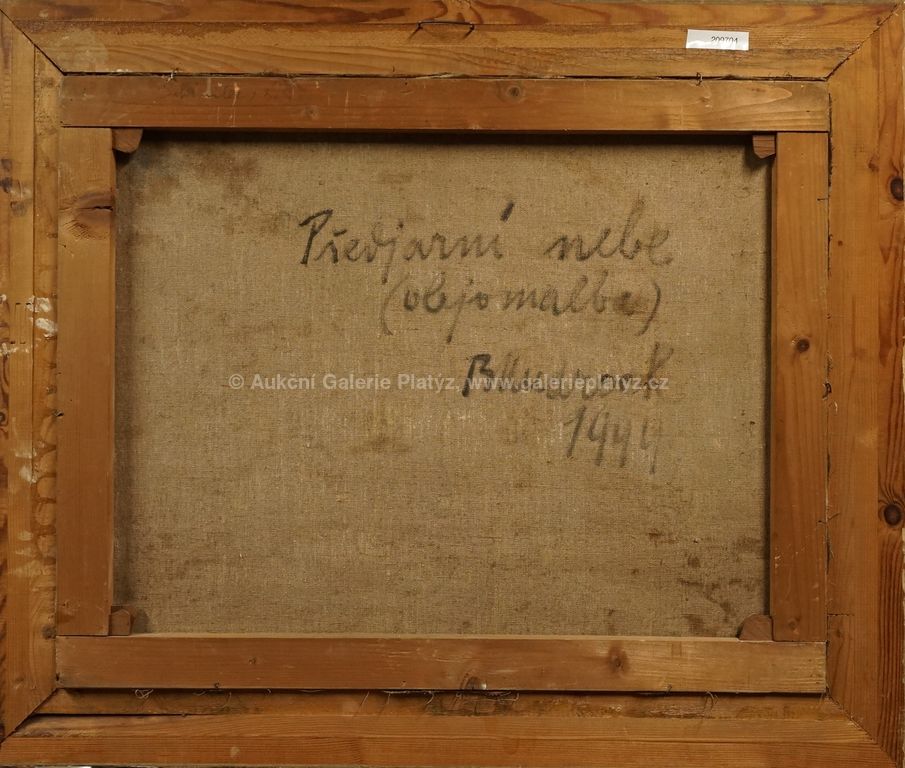 209704
Předjarní nebe
(olejomalba)
© Aukční Galerie Platýz, www.galerieplatyz.cz
1944